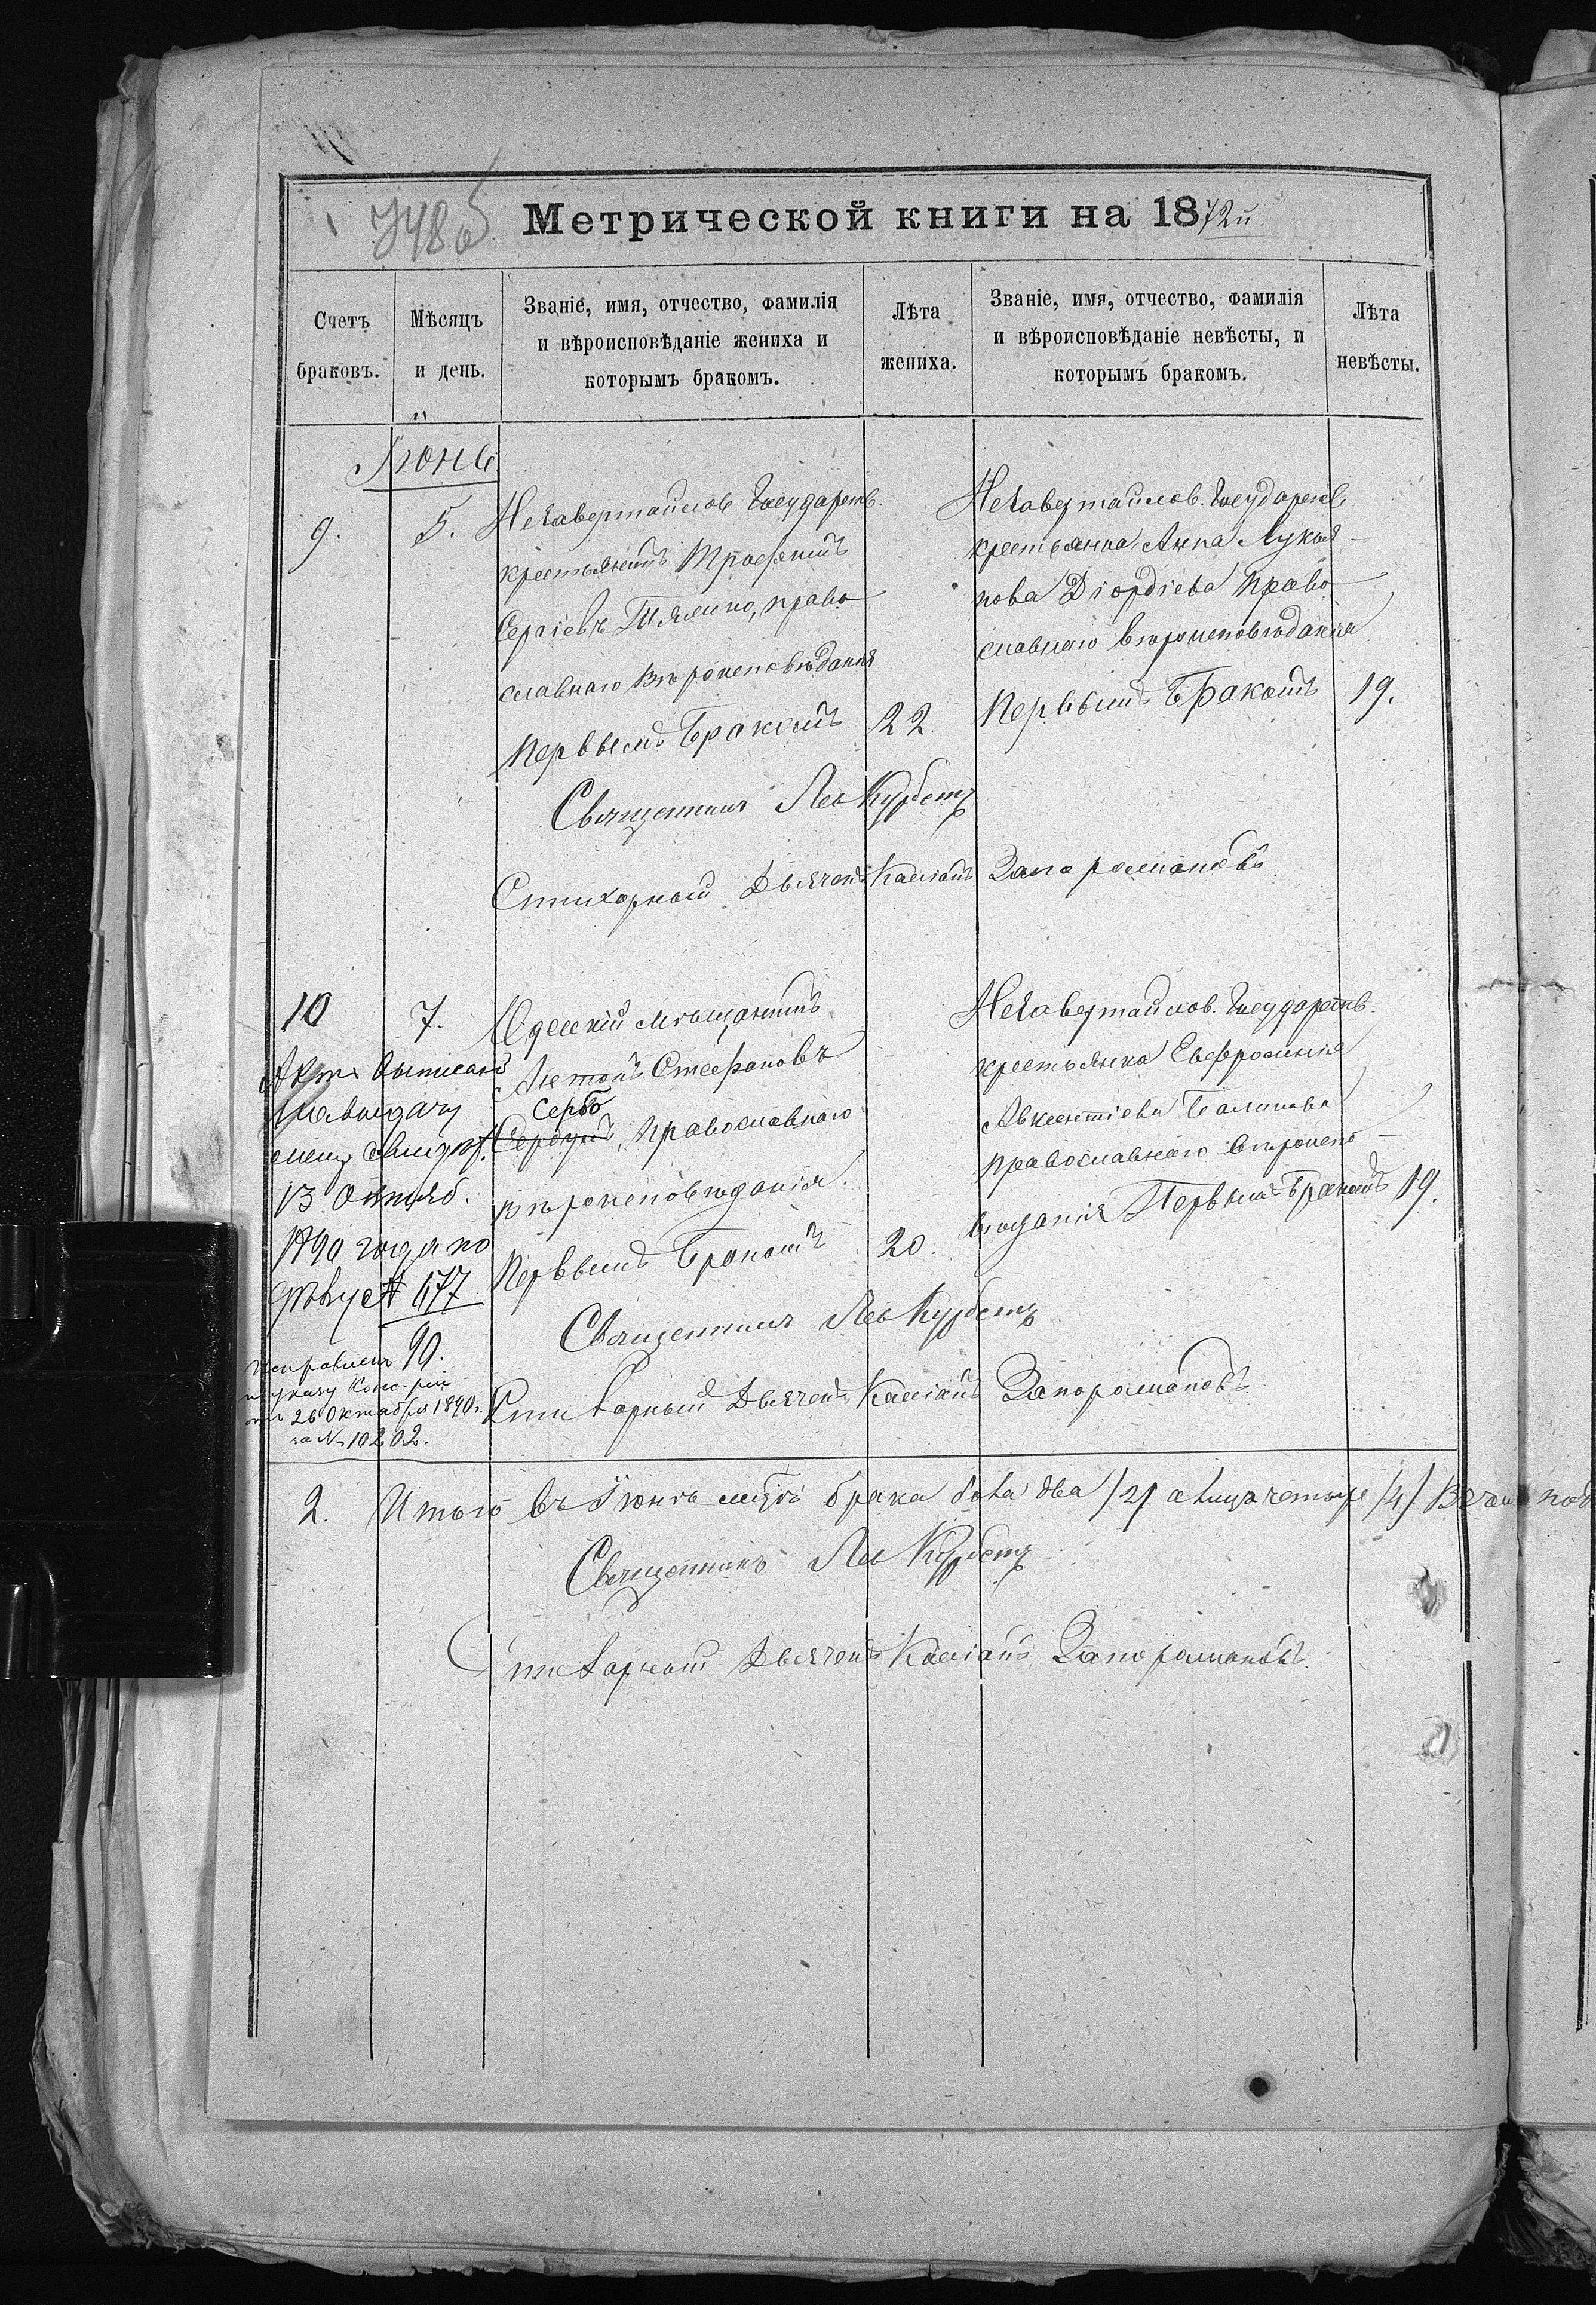 748 об
Метрической книги на 1872й
Счетъ
браковъ.
Мѣсяцъ
и день.
Званіе, имя, отчество, фамилія
и вѣроисповѣданіе жениха и
которымъ бракомъ.
Лѣта
жениха.
Званіе, имя, отчество, фамилія
и вѣроисповѣданіе невѣсты, и
которымъ бракомъ.
Лѣта
невѣсты.
Іюнь
9.
5.
Незавертайлов. Государств.
крестьянинъ Трофимъ
Сергіевъ право
славнаго Вѣроисповѣданія
Первымъ Бракомъ
22.
Незавертайлов. Государств.
крестьянка Анна Лукія
нова Діордіева Право
славнаго вѣроисповѣданія
Первымъ Бракомъ
19.
Священникъ Лев Курбетъ
Стихарный Дьячекъ Касіанъ Запорожановъ
10
7.
Актъ выписанъ
на выдачу
свид.
13 Октяб.
1890 года по
№ 677
90.
Исправленъ
по указу Конс-ріи
отъ 26 Октября 1890 г.
за № 10202.
Одесскій мѣщанинъ
Антонъ Стефановъ
Сербо
Сербулъ, Православнаго
вѣроисповѣданія.
Первымъ Бракомъ
20.
Незавертайлов. Государств.
крестьянка Евфросинія
Авксентіева
православнаго вѣроиспо-
вѣданія Первымъ Бракомъ
19.
Священникъ Лев Курбетъ
Стихарный Дьячекъ Касіанъ Запорожановъ
2.
Итого въ Іюнѣ муж: брака два /2/ а лицъ четыре /4/
Священникъ Лев Курбетъ
Стихарный Дьячекъ Касіанъ Запорожановъ.